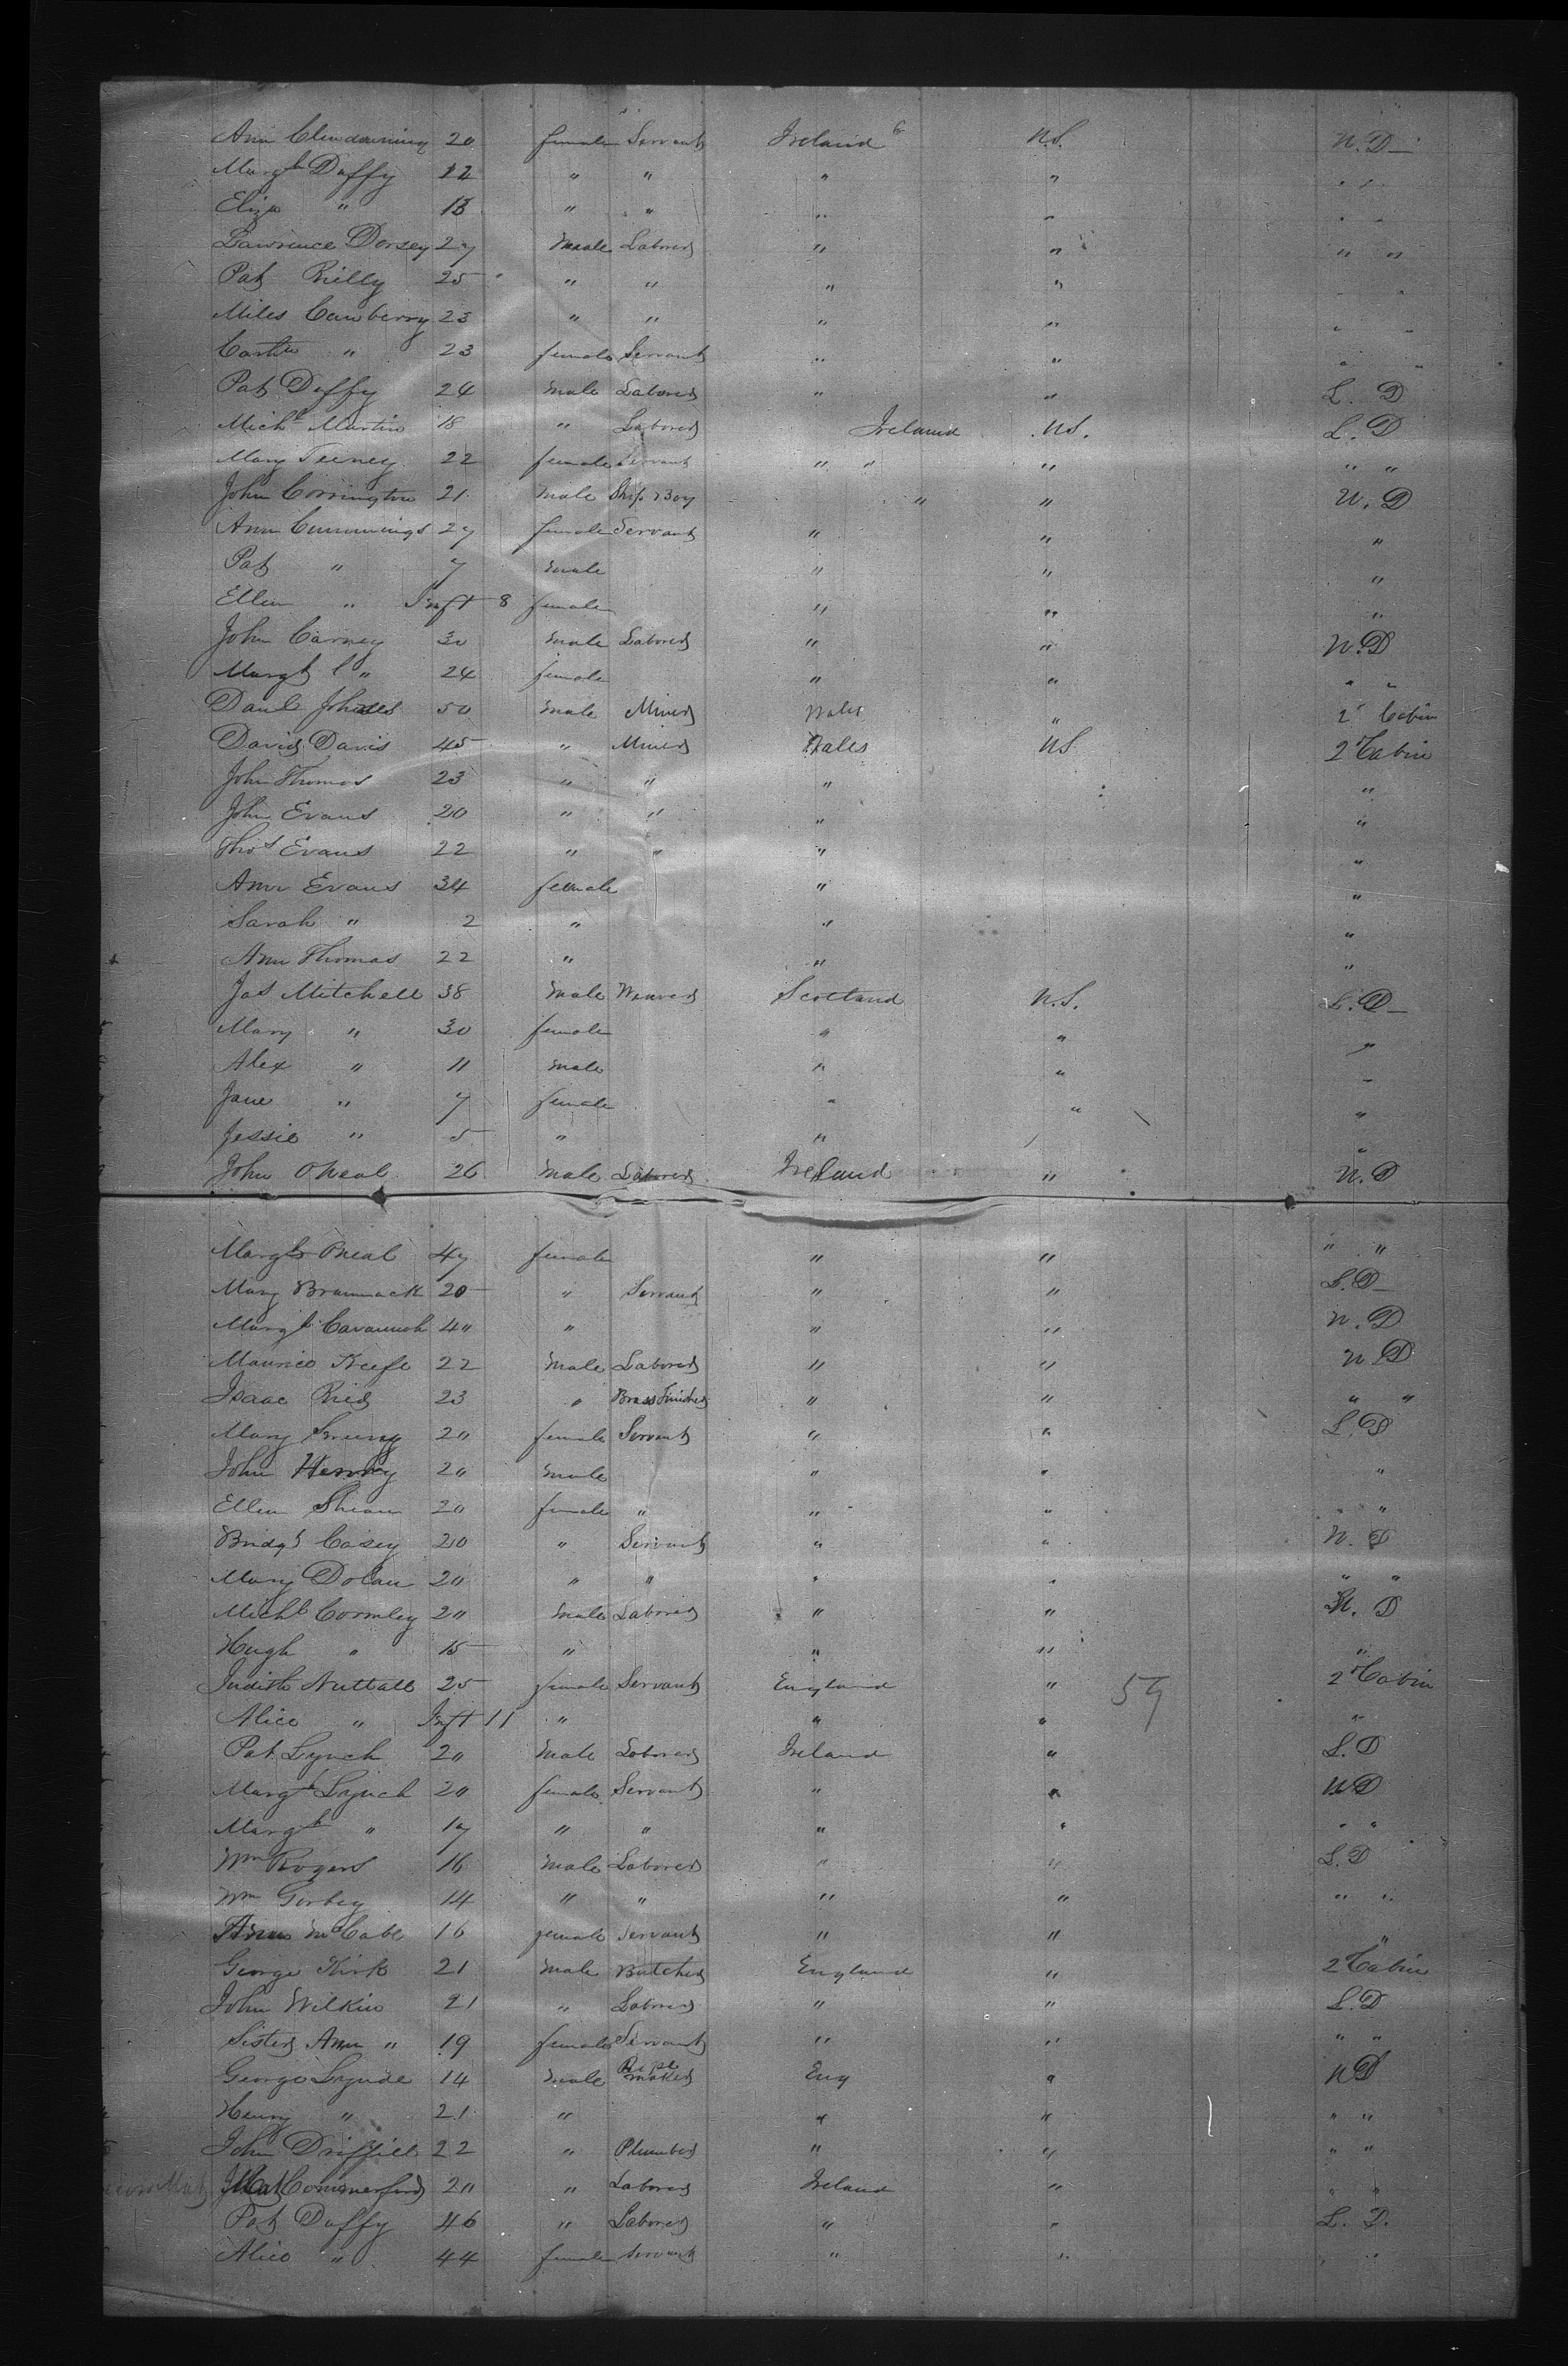 Ann Clendenning 20 female Servant Ireland U.S. U.D
Margt Duffy 22 " " " " " "
Eliza " 13 " " " " " "
Lawrence Dorsey 27 male Laborer " " " "
Pat Rielly 25 " " " " " "
Miles Cawberry 23 " " " " " "
" 23 female Servant " " " "
Pat Duffy 24 male Laborer " " L. D
Michl Martin 18 " Laborer Ireland U.S. L. D
Mary Teeney 22 female Servant " " " " "
John Corrington 21 male Ship Boy " " U. D
Ann Cummings 27 female Servant " " "
Pat " 7 male " " "
Ellen " Inft 8 female " " "
John Carney 30 male Laborer " " U.D
Margt " 24 female " " " "
Danl 50 male Miner Wales " 2d Cabin
David Davis 45 " Miner Wales US 2d Cabin
John Thomas 23 " " " "
John Evans 20 " " " "
Thos Evans 22 " " " "
Ann Evans 34 female " "
Sarah " 2 " " "
Ann Thomas 22 " " "
Jas Mitchell 38 male Weaver Scotland U.S. L.D
Mary " 30 female " " "
Alex " 11 male " " "
Jane " 7 female " " "
Jessie " 5 " " "
John ONeal 26 male Laborer Ireland " U.D
Margt 47 female " " " "
Mary Brannack 20 " Servant " " L.D
Margt Cavannah 40 " " " U. D
Maurice Keefe 22 male Laborer " " U. D
Isaac Ried 23 " Brass Finisher " " " "
Mary 20 female Servant " " L.D
John Henry 20 male " " "
Ellen Shean 20 female " " " " "
Bridgt Casey 20 " Servant " " U. D
Mary Dolan 20 " " " " " "
Michl Cormley 20 male Laborer " " U. D
Hugh " 15 " " " "
Judith Nuttall 25 female Servant England " 59 2d Cabin
Alice " Inft 11 " " " "
Pat Lynch 20 male Laborer Ireland " L.D
Margt Lynch 20 female Servant " " U D
Margt " 17 " " " " " "
Wm Rogers 16 male Laborer " " L.D
Wm Gorbey 14 " " " " " "
Ann McCabe 16 female Servant " " "
George Kirk 21 male Butcher England " 2d Cabin
John Wilkin 21 " Laborer " " L.D
Sister Ann " 19 female Servant " " " "
George Lynde 14 male Rope maker Eng " U D
Henry " 21 " " " " "
John Driffill 22 " Plumber " " " "
Commerford 20 " Laborer Ireland " " "
Pat Duffy 46 " Laborer " " L. D.
Alice " 44 female Servant " " " "